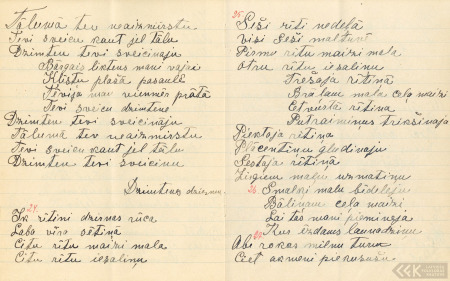 Tālumā tev neaizmirstu
Tevi sveicu kaut jel tālu
Dzimtene tevi sveicināju
Bārgais liktens man vajri
Klīstu plašā pasaulē
Tēvija man vienmēr prātā
Tevi sveicu dzimtene
Dzimtene tevi sveicināju
Tālumā tev neaizmirstu
Tevi sveicu kaut jel tālu
Dzimtene tevi sveicinu
Dzimtenes dziesma.
24
Ik rītiņi dzirnas rūca
Laba vīra sētiņā
Citu rītu maizi mala
Citu rītu iesaliņu
25
Seši rīti nedēļā
Visi seši maltuvē
Pirmo rītu maizi mala
Otru rītu iesaliņu
Trešajā rītiņā
Brāļam mala ceļa maizi
Ceturtā rītiņā
Putraimiņus trikšināja
Piektajā rītiņā
Plācentiņu gludināju
Sestajā rītiņā
Zirgiem maļu uzmatiņu
26 Smalki malu bīdelēju
Bāliņam ceļa maizi
Lai tas mani pieminēja
Kus izdams launadziņu
Abi rokas milnu turu
Ciet akmeni piekususi